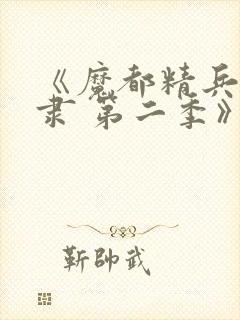 《魔都精兵
隶 第二季》
靳帅武